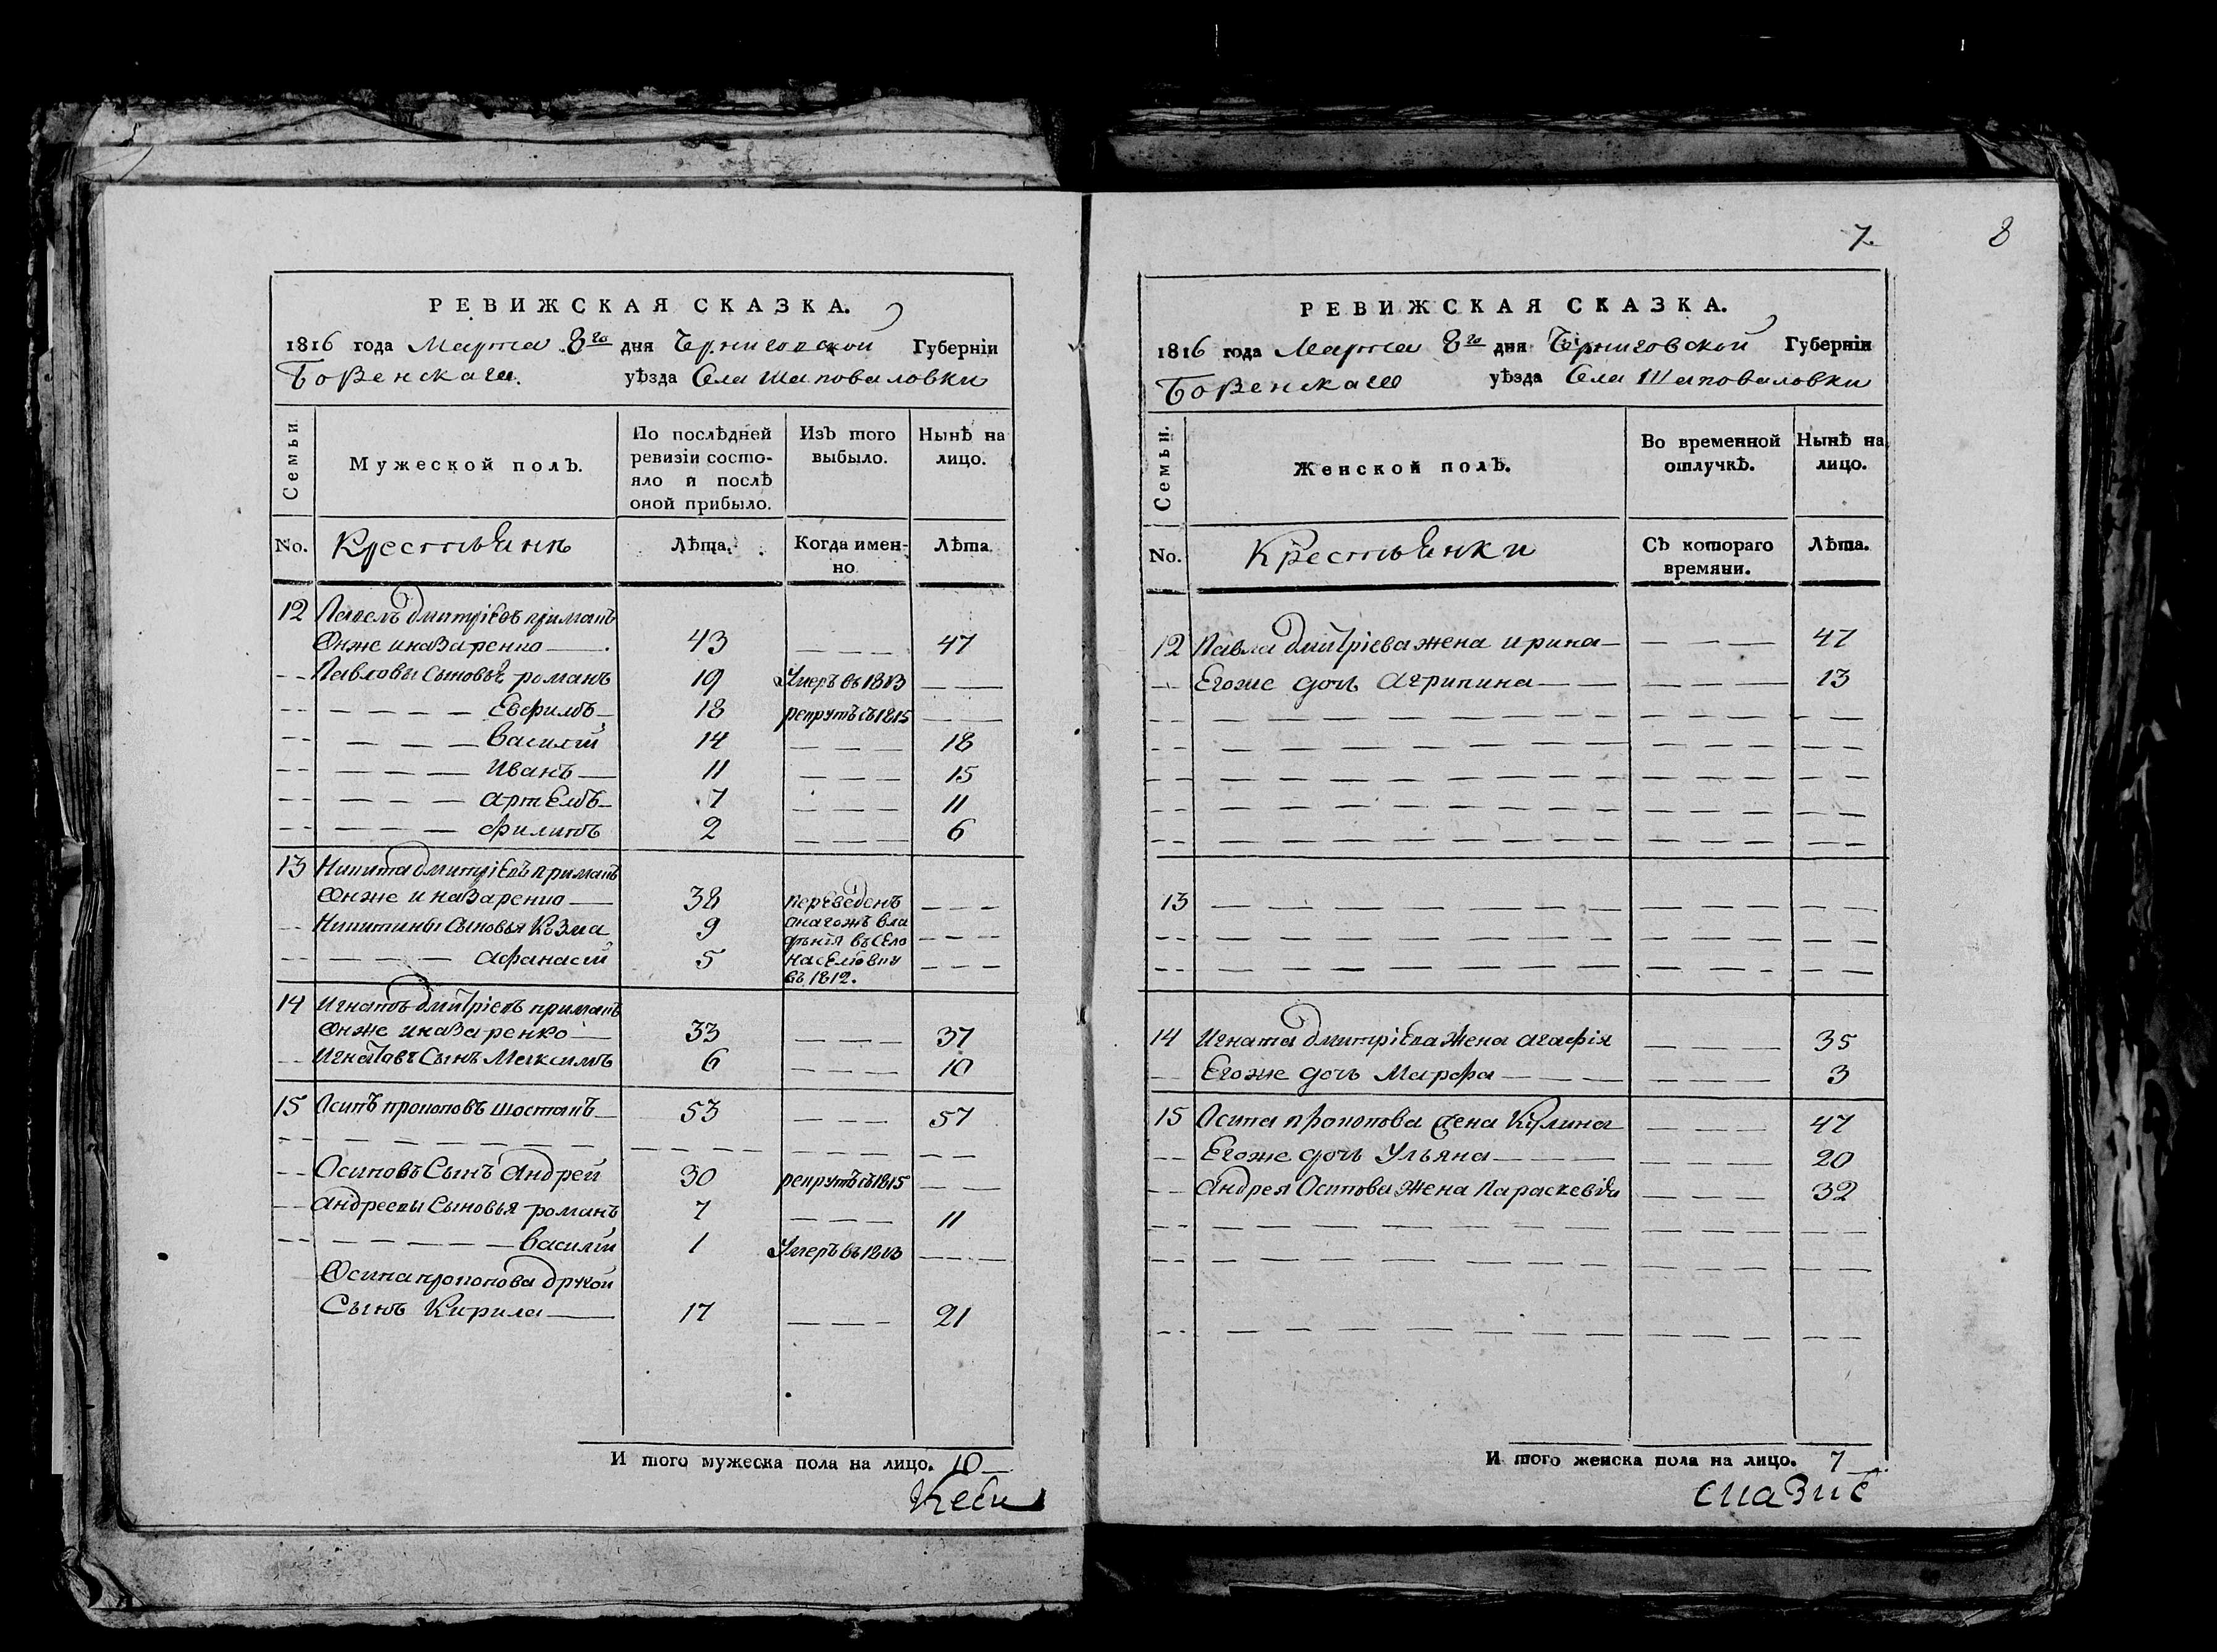 РЕВИЖСКАЯ СКАЗКА.
1816 года Марта 8го дня Черниговской Губернїи
Борзенскаго уѣзда Села Шаповаловки
Семьи.
Мужеской полъ.
По послѣдней ревизїи состояло и послѣ оной прибыло.
Изъ того выбыло.
Нынѣ на лицо.
No. Крестьянъ Лѣта. Когда именно Лѣта.
12 Павелъ Дмитрієвъ примакъ
Онже и назаренко — 43 — — — 47
— Павловы Сыновья романъ 19 Умеръ въ 1813 — —
— — — — Евфимъ 18 рекрутъ съ 1815 — —
— — — — Василій 14 — — — 18
— — — — Иванъ 11 — — — 15
— — — — артемъ 7 — — — 11
— — — — филипъ 2 — — — 6
13 Никита дмитрієвъ примакъ
Онже и назаренко — 38 переведенъ — — —
— Никитины Сыновья Козма 9 — — —
— — — афанасій 5 — — —
въ 1812.
14 Игнатъ Дмитрієвъ примакъ
Онже и назаренко — 33 — — — 37
— Игнатовъ Сынъ Максимъ 6 — — — 10
15 Осипъ прокоповъ шостакъ 53 — — — 57
— Осиповъ Сынъ Андрей 30 рекрутъ съ 1815 — —
— андреевы Сыновья романъ 7 — — — 11
— — — — Василій 1 Умеръ въ 1813 — —
Осипа прокопова другой
Сынъ Кирила — 17 — — — 21
И того мужеска пола на лицо. 10
7.
8
РЕВИЖСКАЯ СКАЗКА.
1816 года Марта 8го дня Черниговской Губернїи
Борзенскаго уѣзда Села Шаповаловки
Семьи.
Женской полъ.
Во временной отлучкѣ.
Нынѣ на лицо.
No. Крестьянки Съ котораго времяни. Лѣта.
12 Павла дмитрієва жена ирина — — — — 47
— Егоже дочь Агрипина — — — — 13
13 — — —
14 Игната дмитрієва Жена агафія — — — 35
— Егоже дочь Марфа — — — 3
15 Осипа прокопова жена Кулина — — — 47
— Егоже дочь Ульяна — — — 20
— андрея Осипова жена Параскевія — — — 32
И того женска пола на лицо. 7